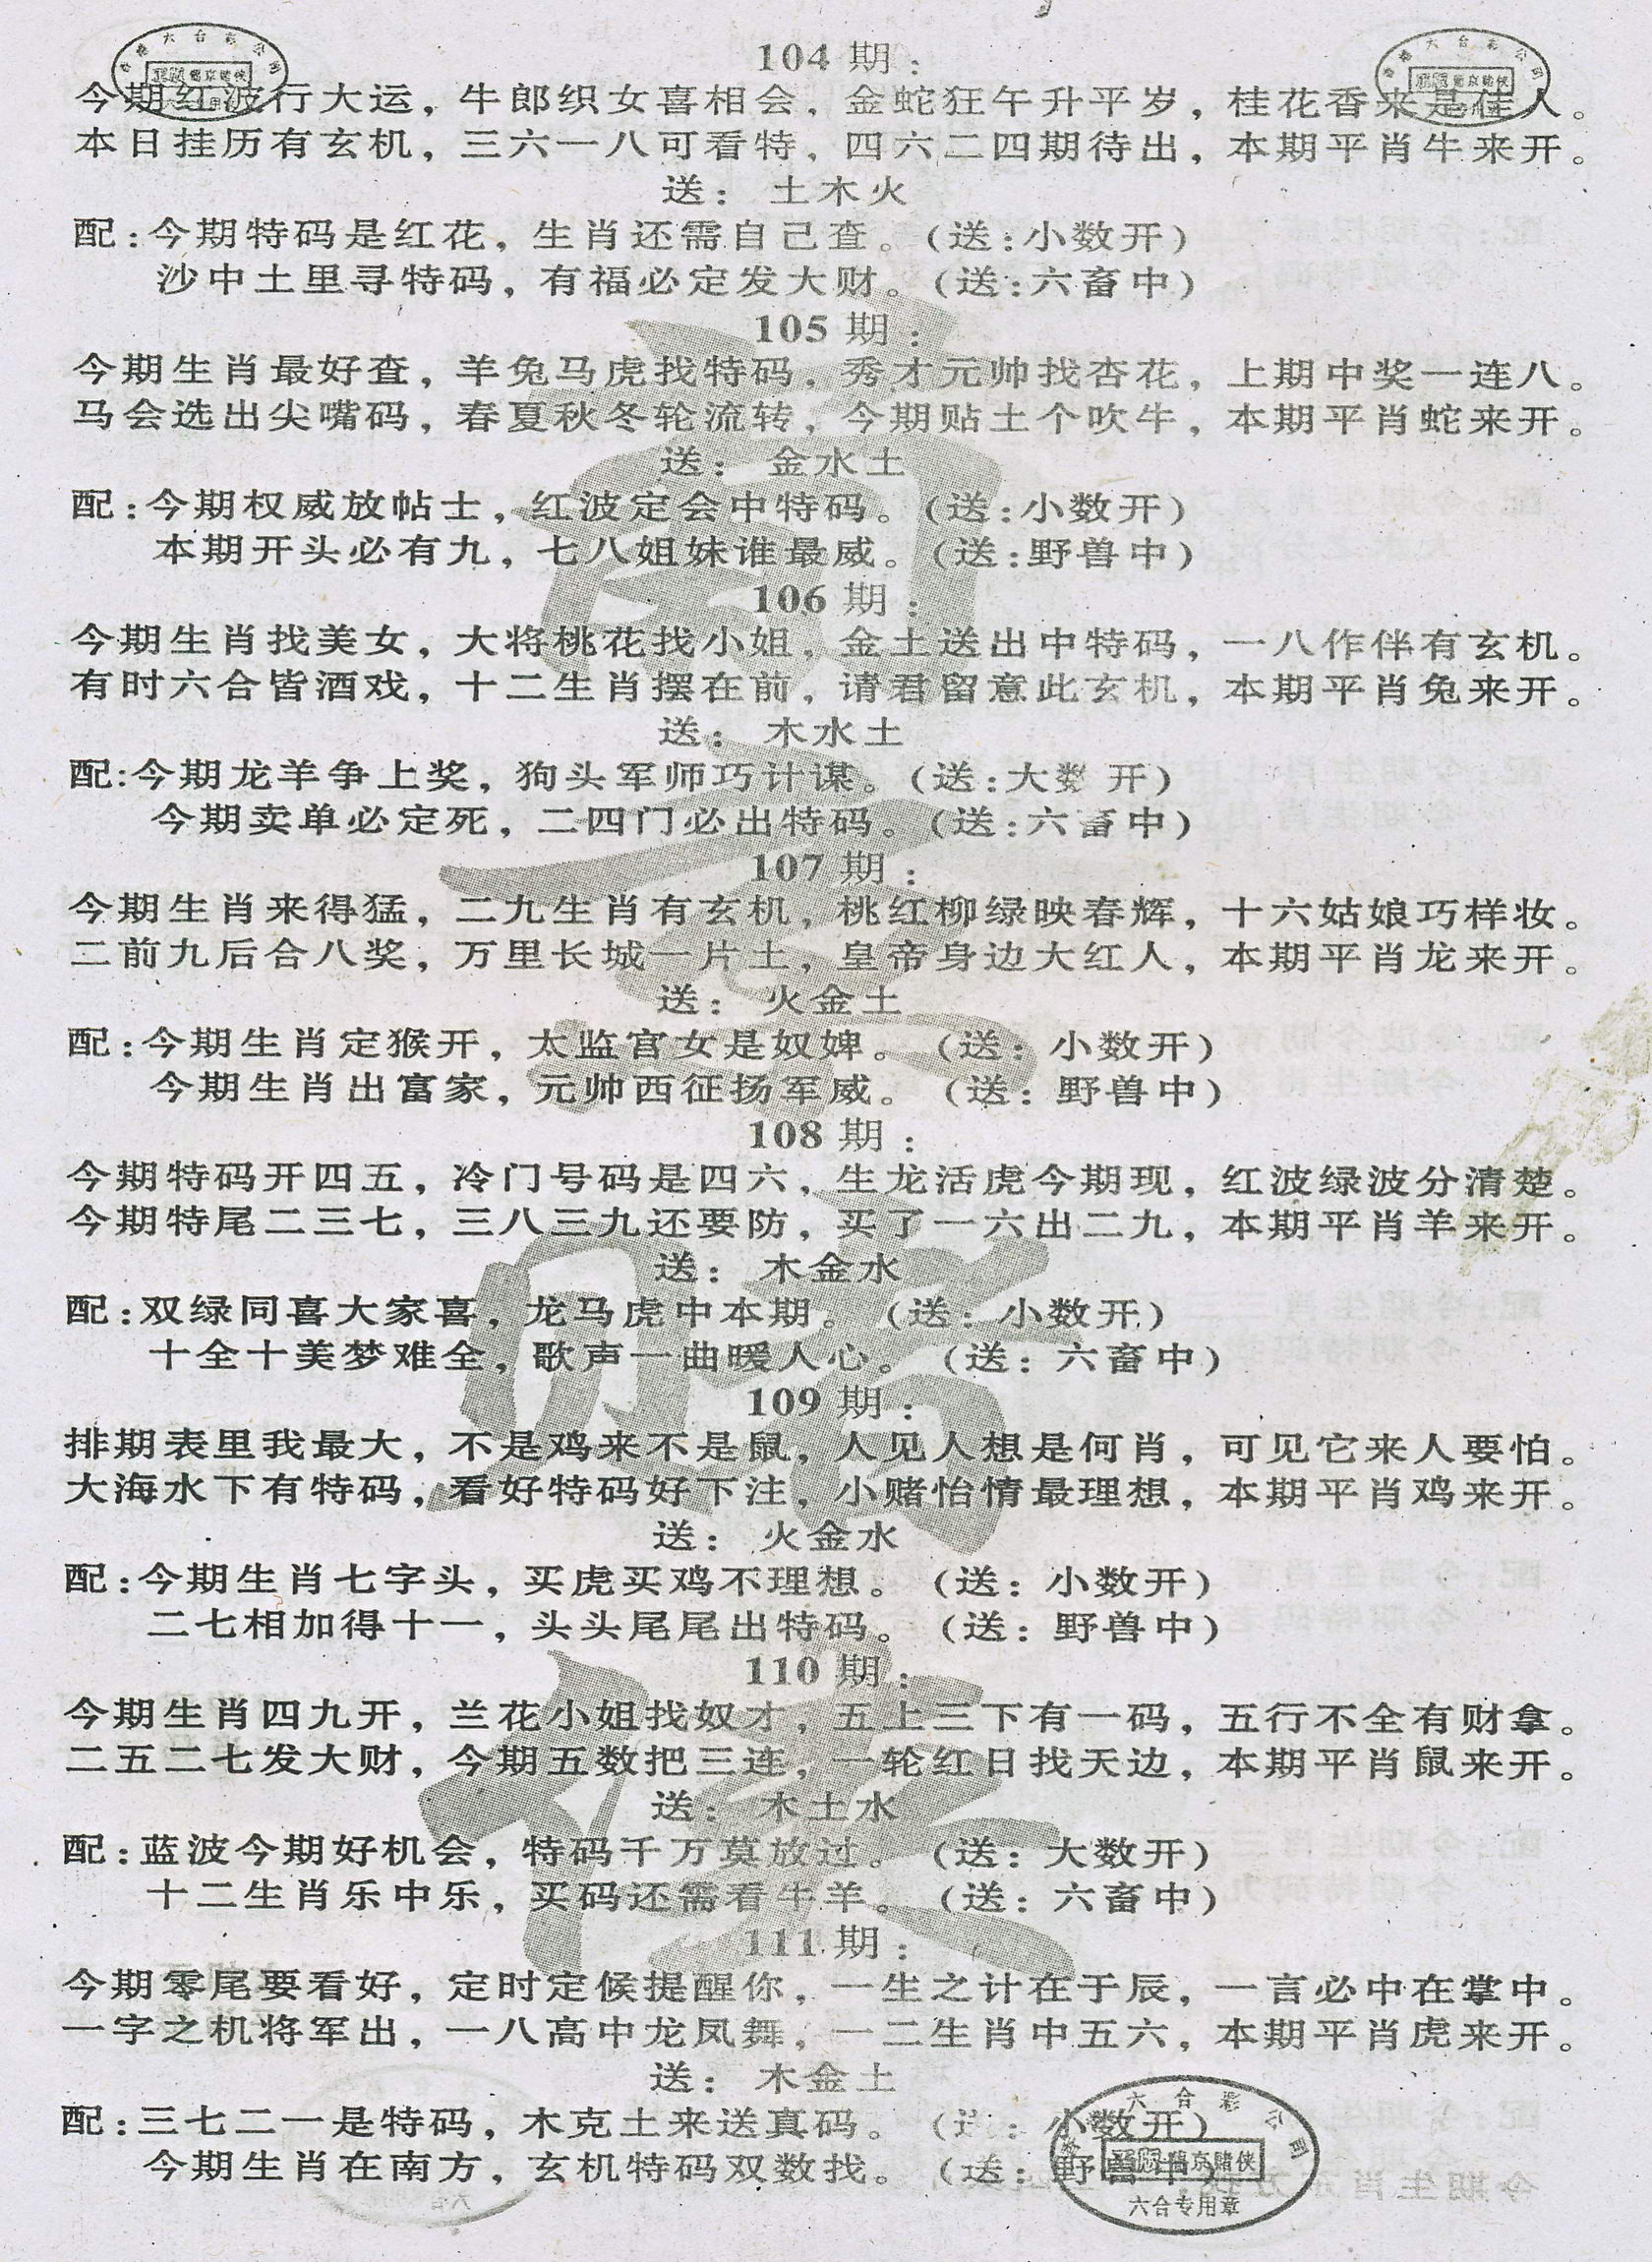 104 期：
今期红波行大运，牛郎织女喜相会，金蛇狂午升平岁，桂花香来是佳人。
本日挂历有玄机，三六一八可看特，四六二四期待出，本期平肖牛来开。
送： 土木火
配：今期特码是红花，生肖还需自己查。（送：小数开）
沙中土里寻特码，有福必定发大财。（送：六畜中）
105 期：
今期生肖最好查，羊兔马虎找特码，秀才元帅找杏花，上期中奖一连八。
马会选出尖嘴码，春夏秋冬轮流转，今期贴土个吹牛，本期平肖蛇来开。
送： 金水土
配：今期权威放帖士，红波定会中特码。（送：小数开）
本期开头必有九，七八姐妹谁最威。（送：野兽中）
106 期：
今期生肖找美女，大将桃花找小姐，金土送出中特码，一八作伴有玄机。
有时六合皆酒戏，十二生肖摆在前，请君留意此玄机，本期平肖兔来开。
送： 木水土
配：今期龙羊争上奖，狗头军师巧计谋。（送：大数 开）
今期卖单必定死，二四门必出特码。（送：六畜中）
107 期：
今期生肖来得猛，二九生肖有玄机，桃红柳绿映春辉，十六姑娘巧样妆。
二前九后合八奖，万里长城一片土，皇帝身边大红人，本期平肖龙来开。
送： 火金土
配：今期生肖定猴开，太监宫女是奴婢。（送：小数开）
今期生肖出富家，元帅西征扬军威。（送：野兽中）
108 期：
今期特码开四五，冷门号码是四六，生龙活虎今期现，红波绿波分清楚。
今期特尾二三七，三八三九还要防，买了一六出二九，本期平肖羊来开。
送： 木金水
配：双绿同喜大家喜，龙马虎中本期。（送：小数开）
十全十美梦难全，歌声一曲暖人心。（送：六畜中）
109 期：
排期表里我最大，不是鸡来不是鼠，人见人想是何肖，可见它来人要怕。
大海水下有特码，看好特码好下注，小赌怡情最理想，本期平肖鸡来开。
送： 火金水
配：今期生肖七字头，买虎买鸡不理想。（送：小数开）
二七相加得十一，头头尾尾出特码。（送：野兽中）
110 期：
今期生肖四九开，兰花小姐找奴才，五上三下有一码，五行不全有财拿。
二五二七发大财，今期五数把三连，一轮红日找天边，本期平肖鼠来开。
送： 木土水
配：蓝波今期好机会，特码千万莫放过。（送：大数开）
十二生肖乐中乐，买码还需看牛羊。（送：六畜中）
111 期：
今期零尾要看好，定时定候提醒你，一生之计在于辰，一言必中在掌中。
一字之机将军出，一八高中龙凤舞，一二生肖中五六，本期平肖虎来开。
送： 木金土
配：三七二一是特码，木克土来送真码。（送：小数开）
今期生肖在南方，玄机特码双数找。（送：野兽中）
六合专用章